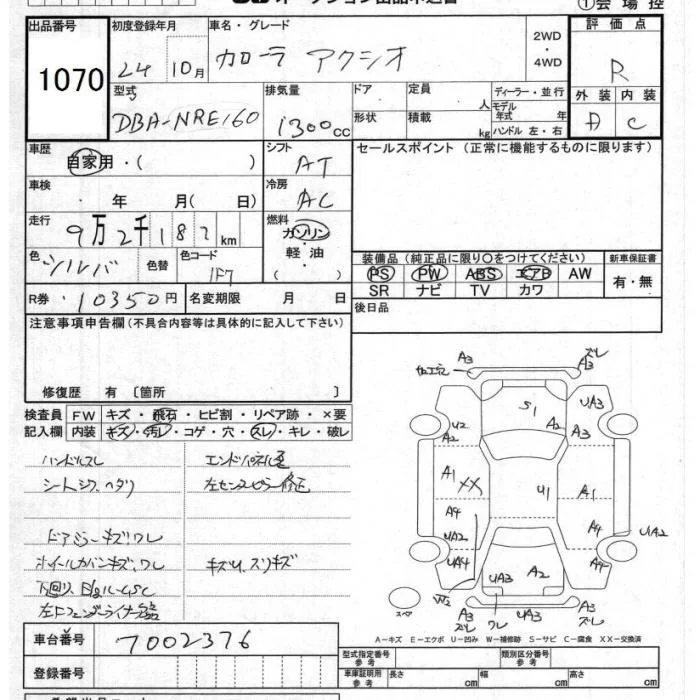 オークション出品申込書
①会場控
出品番号 1070
初度登録年月 24 10月
車名・グレード カローラ アクシオ
2WD・4WD
評価点 R
外装 A 内装 C
型式 DBA-NRE160
排気量 1300cc
ドア 形状
定員 人
積載 kg
ディーラー・並行
モデル年式 年
ハンドル 左・右
車歴 自家用・( )
シフト AT
セールスポイント(正常に機能するものに限ります)
車検 年 月( 日)
冷房 AC
走行 9万2千187km
燃料 ガソリン・軽油・( )
色 シルバ 色替 色コード 1F7
装備品(純正品に限り○をつけてください)
新車保証書
PS PW ABS エアB AW
有・無
SR ナビ TV カワ
R券 10350円
名変期限 月 日
後日品
注意事項申告欄(不具合内容等は具体的に記入して下さい)
修復歴 有〔箇所 〕
検査員記入欄
FW キズ・飛石・ヒビ割・リペア跡・×要
内装 キズ・汚レ・コゲ・穴・スレ・キレ・破レ
ハンドルスレ
エンドパネル歪
シートシワ、ヘタリ
左センターピラー修正
ドアミラーキズ、ワレ
ホイールカバーキズ、ワレ
キズU、スリキズ
A3 A3 ズレ
S1 UA3
U2 A2 A2 A3
A1 XX U1 A1
A4 A4 UA2
UA2
UA4 A2 A4
UA3
A3 ズレ ワレ UA3 A3 ズレ
スペア
A-キズ E-エクボ U-凹み W-補修跡 S-サビ C-腐食 XX-交換済
車台番号 7002376
型式指定番号 参考
類別区分番号 参考
登録番号
車庫証明用 参考 長さ cm 幅 cm 高さ cm